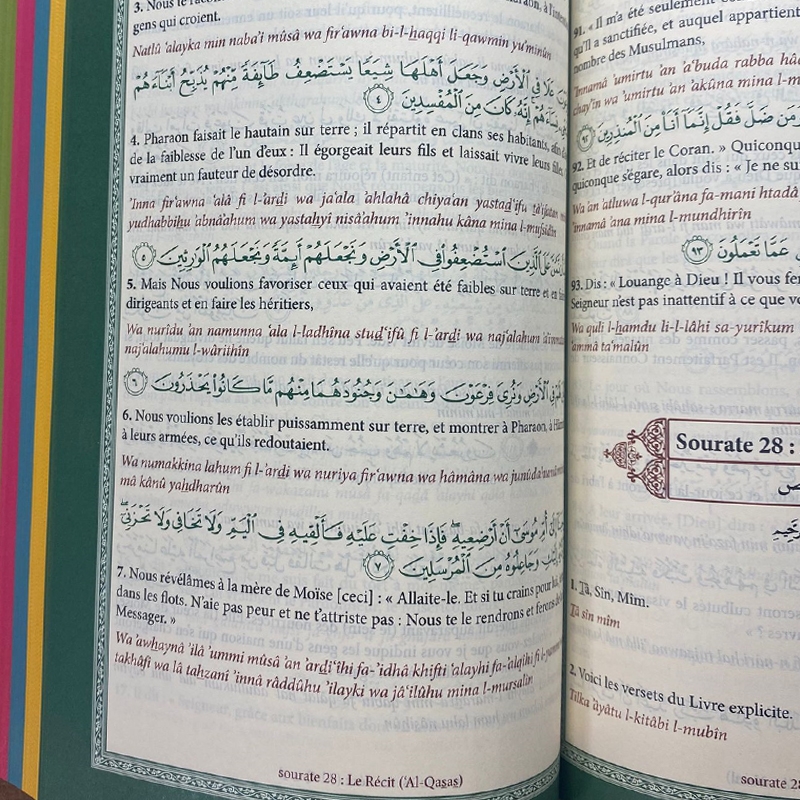 3. Nous te raco
gens qui croient.
Natlû 'alayka min naba'i mûsâ wa fir'awna bi-l-haqqi li-qawmin yu'minûn
عَلَا فِي الْأَرْضِ وَجَعَلَ أَهْلَهَا شِيَعًا يَسْتَضْعِفُ طَائِفَةً مِنْهُمْ يُذَبِّحُ أَبْنَاءَهُمْ
نِسَاءَهُمْ إِنَّهُ كَانَ مِنَ الْمُفْسِدِينَ ٤
4. Pharaon faisait le hautain sur terre ; il répartit en clans ses habitants, afin d
de la faiblesse de l'un d'eux : Il égorgeait leurs fils et laissait vivre leurs filles.
vraiment un fauteur de désordre.
'Inna fir'awna 'alâ fi l-'ardi wa ja'ala 'ahlahâ chiya'an yastad'ifu tâ'ifatan
yudhabbihu 'abnâ'ahum wa yastahyî nisâ'ahum 'innahu kâna mina l-mufsidîn
عَلَى الَّذِينَ اسْتُضْعِفُوا فِي الْأَرْضِ وَنَجْعَلَهُمْ أَئِمَّةً وَنَجْعَلَهُمُ الْوَارِثِينَ ٥
5. Mais Nous voulions favoriser ceux qui avaient été faibles sur terre et en
dirigeants et en faire les héritiers,
Wa nurîdu 'an namunna 'ala l-ladhîna stud'ifû fi l-'ardi wa naj'alahum
naj'alahumu l-wârithîn
فِي الْأَرْضِ وَنُرِيَ فِرْعَوْنَ وَهَامَانَ وَجُنُودَهُمَا مِنْهُم مَّا كَانُوا يَحْذَرُونَ ٦
6. Nous voulions les établir puissamment sur terre, et montrer à Pharaon, à Hâm
à leurs armées, ce qu'ils redoutaient.
Wa numakkina lahum fi l-'ardi wa nuriya fir'awna wa hâmâna wa junûdahumâ
mâ kânû yahdharûn
أُمِّ مُوسَىٰ أَنْ أَرْضِعِيهِ فَإِذَا خِفْتِ عَلَيْهِ فَأَلْقِيهِ فِي الْيَمِّ وَلَا تَخَافِي وَلَا تَحْزَنِي
وَجَاعِلُوهُ مِنَ الْمُرْسَلِينَ ٧
7. Nous révélâmes à la mère de Moïse [ceci] : « Allaite-le. Et si tu crains pour lui,
dans les flots. N'aie pas peur et ne t'attriste pas : Nous te le rendrons et ferons de
Messager. »
Wa 'awhaynâ 'ilâ 'ummi mûsâ 'an 'ardi'îhi fa-'idhâ khifti 'alayhi fa-'alqîhi fi l-yammi
takhâfî wa lâ tahzanî 'innâ râddûhu 'ilayki wa jâ'ilûhu mina l-mursalîn
sourate 28 : Le Récit ('Al-Qasas)
91. « Il m'a été seulement
qu'Il a sanctifiée, et auquel appartient
nombre des Musulmans,
'Innamâ 'umirtu 'an 'a'buda rabba hâ
chay'in wa 'umirtu 'an 'akûna mina l-m
وَمَن ضَلَّ فَقُلْ إِنَّمَا أَنَا مِنَ الْمُنذِرِينَ ٩٢
92. Et de réciter le Coran. » Quiconqu
quiconque s'égare, alors dis : « Je ne su
Wa 'an 'atluwa l-qur'âna fa-mani htadâ
'innamâ 'ana mina l-mundhirîn
عَمَّا تَعْمَلُونَ ٩٣
93. Dis : « Louange à Dieu ! Il vous fer
Seigneur n'est pas inattentif à ce que vo
Wa quli l-hamdu li-l-lâhi sa-yurîkum
'ammâ ta'malûn
Sourate 28 :
1. Tâ, Sîn, Mîm.
Tâ sîn mîm
2. Voici les versets du Livre explicite.
Tilka 'âyâtu l-kitâbi l-mubîn
sourate 28